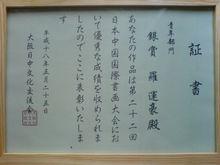 証書
青年部門
銀賞 羅運豪殿
あなたの作品は第二十二回
日本中国国際書画大会にお
いて優秀な成績を収められま
したのでここに表彰いたしま
す
平成十八年五月二十五日
大阪日中文化交流会